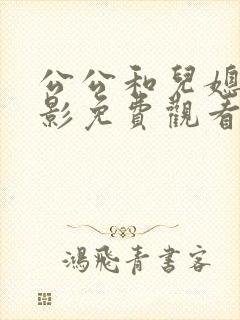 公公和兒媳
影免費觀看
鴻飛青書客